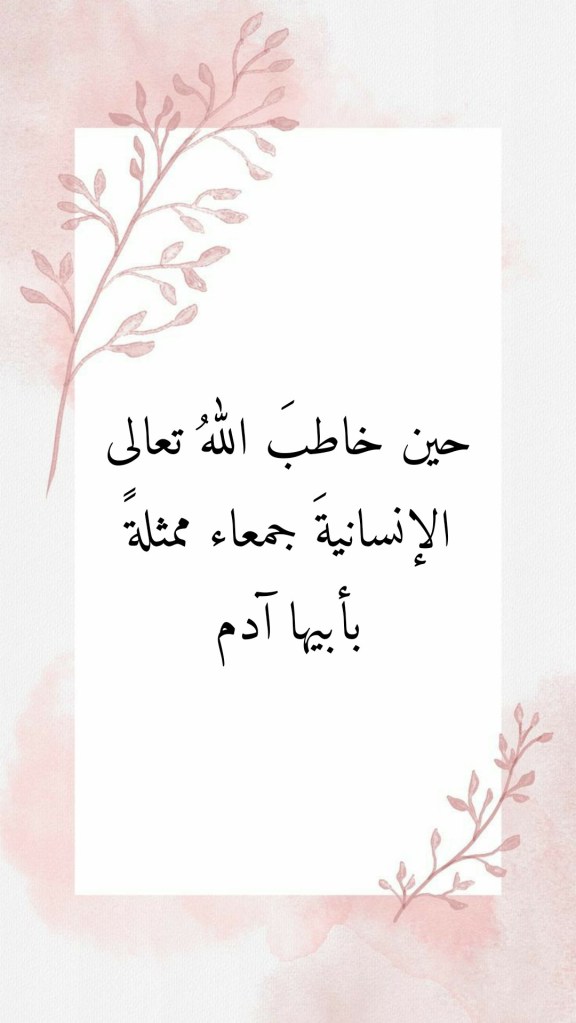 حين خاطبَ اللهُ تعالى
الإنسانيةَ جمعاء ممثلةً
بأبيها آدم